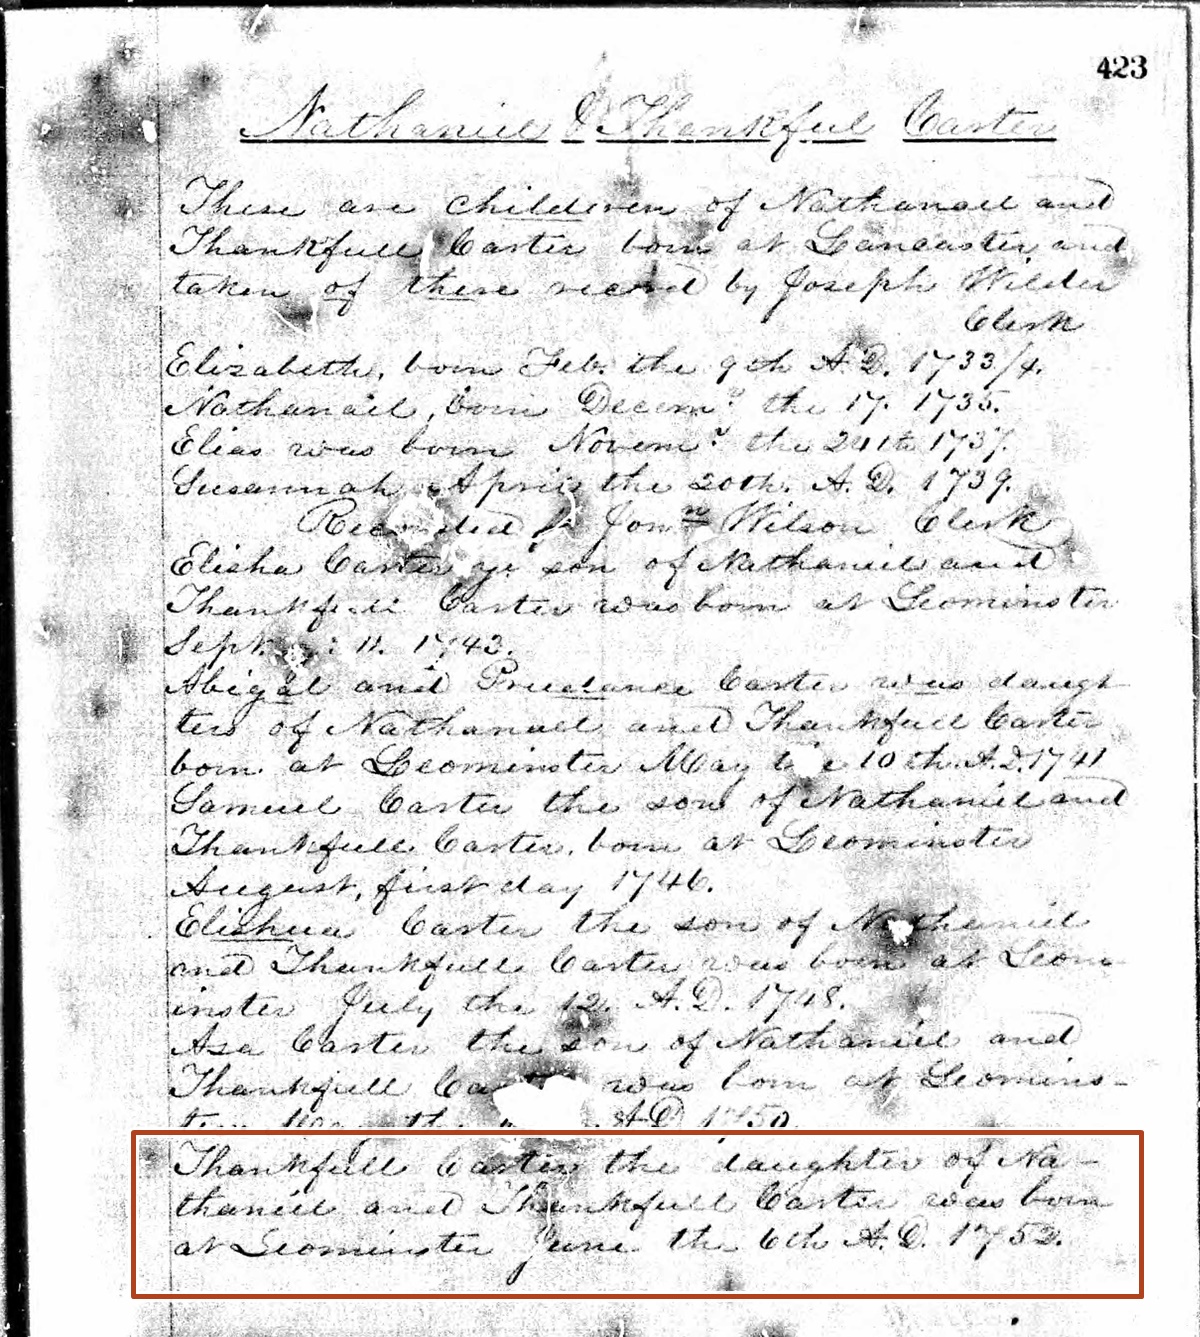 423
Nathaniel & Thankful Carter
These are childeren of Nathanael and
Thankfull Carter born at Lancaster, and
taken of there record by Joseph Wilder
Clerk
Elizabeth, born Feb. the 9th A.D. 1733/4.
Nathanael, born Decemr the 17. 1735.
Elias was born Novemr the 24th 1737.
Susannah April the 20th. A.D. 1739.
Recorded Jonn Wilson Clerk
Elisha Carter ye son of Nathaniel and
Thankfull Carter was born at Leominster
Sept. 11. 1743.
Abigal and Pruedance Carter was daugh-
ters of Nathanaell and Thankfull Carter
born at Leominster May the 10th A.D. 1741
Samuel Carter the son of Nathaniel and
Thankfull Carter, born at Leominster
August, first day 1746.
Elishua Carter the son of Nathaniel
and Thankfull Carter was born at Leom-
inster July the 12. A.D. 1748.
Asa Carter the son of Nathaniel and
Thankfull Carter was born at Leomins-
ter the A.D. 1750.
Thankfull Carter the daughter of Na-
thaniel and Thankfull Carter was born
at Leominster June the 6th A.D. 1752.